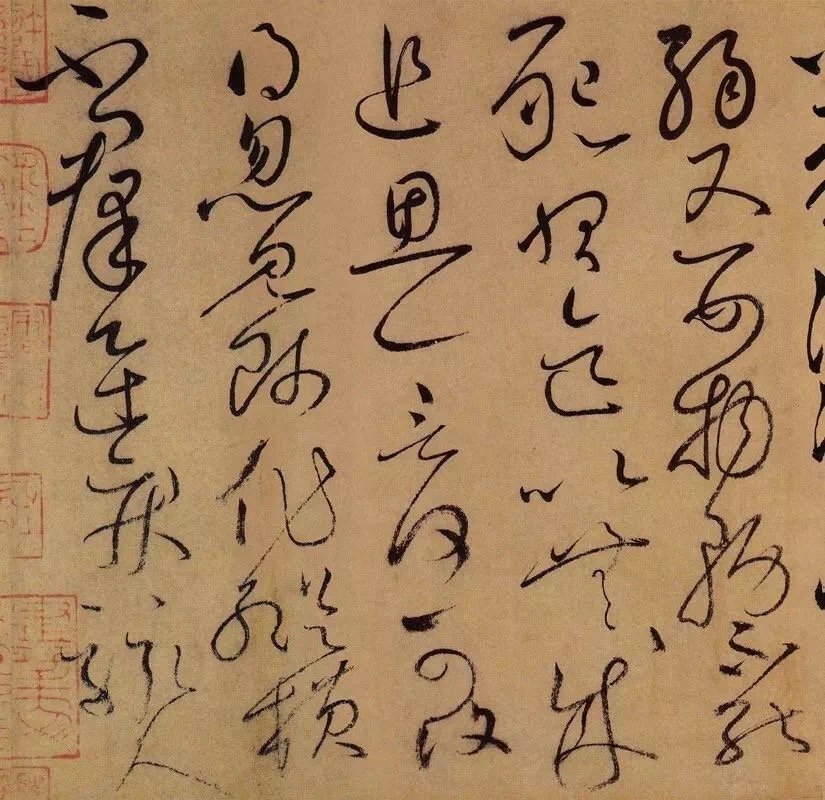 弱又嬰物務不能
懇習迄以無成
追思一言何可復
得忽見師作縱橫
不群迅疾駭人